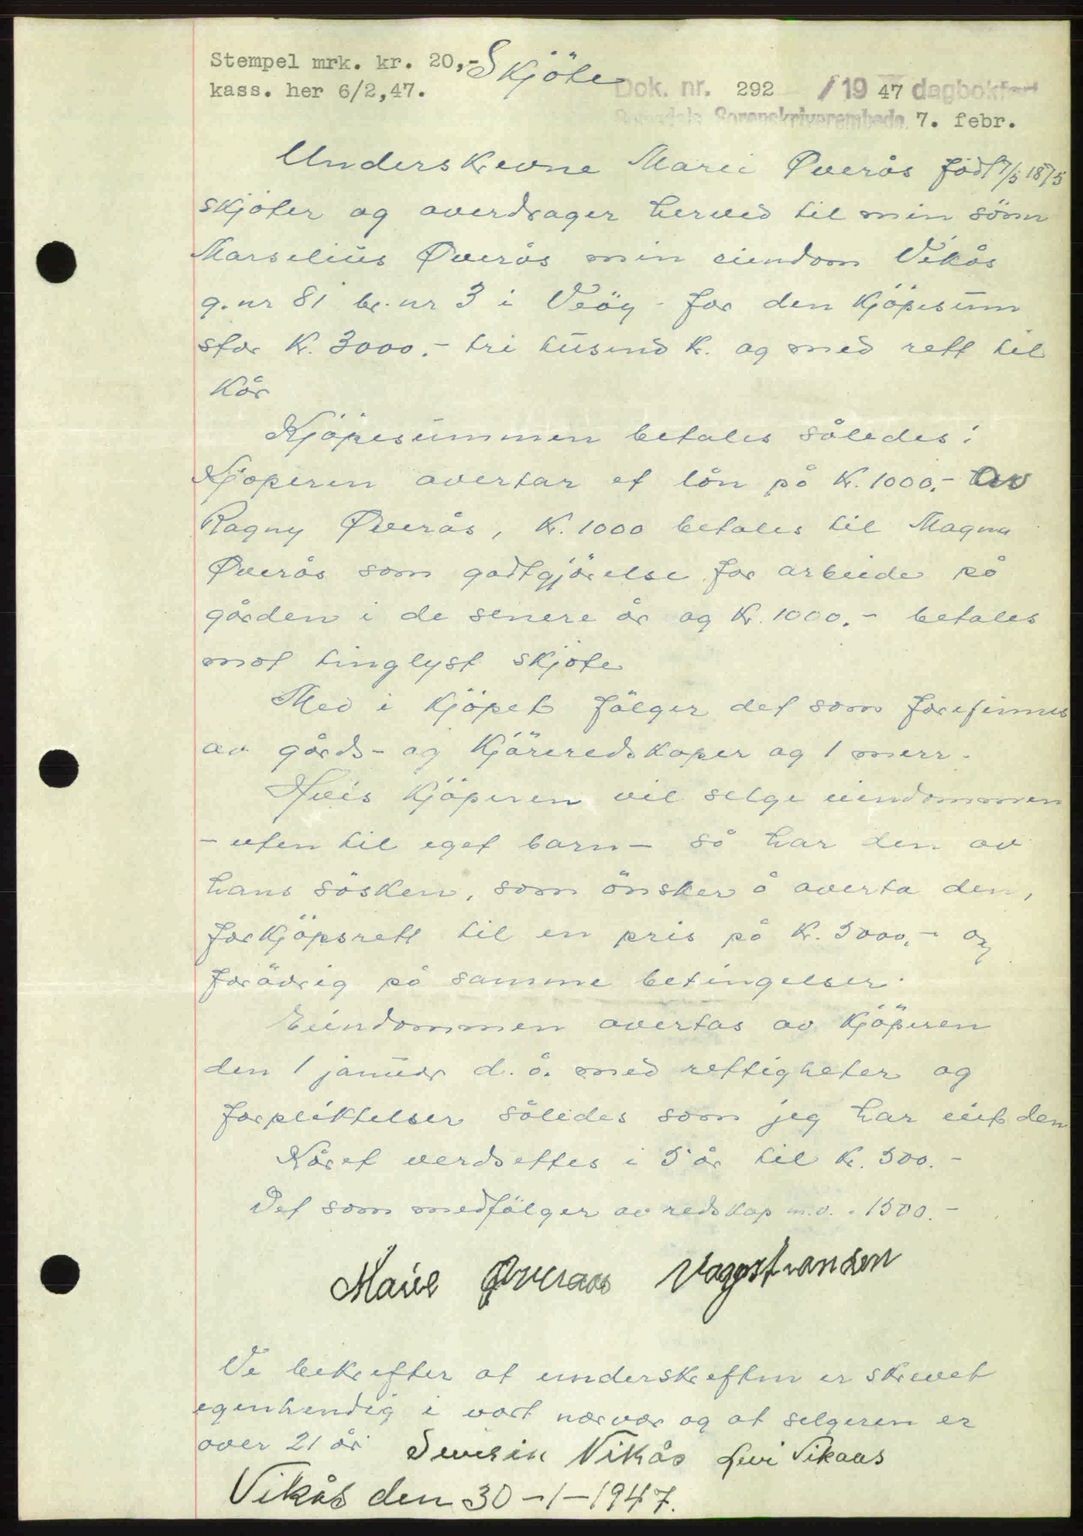 Stempel mrk. kr. 20,- Skjöte
kass. her 6/2,47.
Dok. nr. 292 /19 47 dagbokført
Sorenskriverembede 7. febr.
Underskrevne Marie Øverås født 7/5 1875
skjöter og overdrager herved til min sönn
Marselius Øverås min eiendom Vikås
g.nr 81 br.nr 3 i Veöy for den kjöpesum
stor kr. 3000.- tri tusend kr. og med rett til
kår
Kjöpesummen betales således:
Kjöperen overtar et lån på kr. 1000,- av
Ragny Øverås, kr. 1000 betales til Magna
Øverås som godtgjörelse for arbeide på
gården i de senere år og kr. 1000.- betales
mot tinglyst skjöte
Med i kjöpet fölger det som forefinnes
av gårds- og kjöreredskaper og 1 merr.
Hvis kjöperen vil selge eiendommen
- uten til eget barn - så har den av
hans sösken, som önsker å overta den,
forkjöpsrett til en pris på kr. 3000,- og
foröврig på samme betingelser.
Eiendommen overtas av kjöperen
den 1 januar d. å. med rettigheter og
forpliktelser således som jeg har eiet den
Kåret verdsettes i 5 år til kr. 500.-
Det som medfölger av redskap m.v. - 1500.-
Marie Øveraas Vaagstranden
Vi bekrefter at underskriften er skrevet
egenhendig i vort nærvær og at selgeren er
over 21 år Severin Vikås Levi Vikaas
Vikås den 30-1-1947.